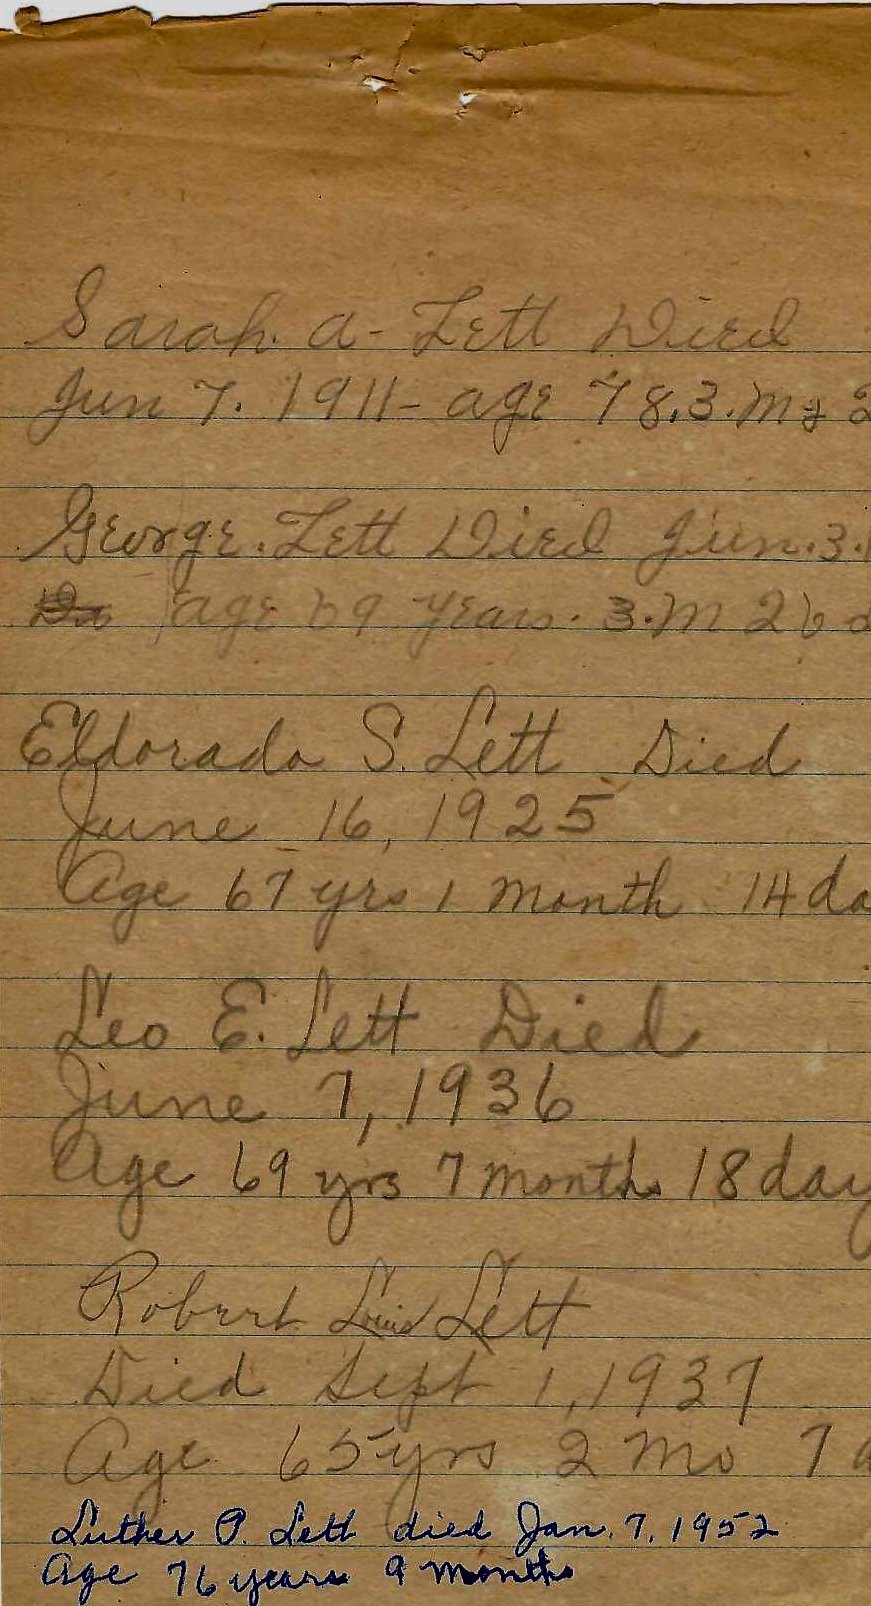 Sarah. A - Lett Died
Jun 7. 1911 - age 78.3.m
George. Lett Died Jun. 3.
age 69 years. 3.M 26
Eldorado S. Lett Died
June 16, 1925
Age 67 yrs 1 month 14 da
Leo E. Lett Died
June 7, 1936
Age 69 yrs 7 months 18 day
Robert Louis Lett
Died Sept 1, 1937
Age 65 yrs 2 Mo 7
Luther P. Lett died Jan. 7, 1952
Age 76 years 9 months